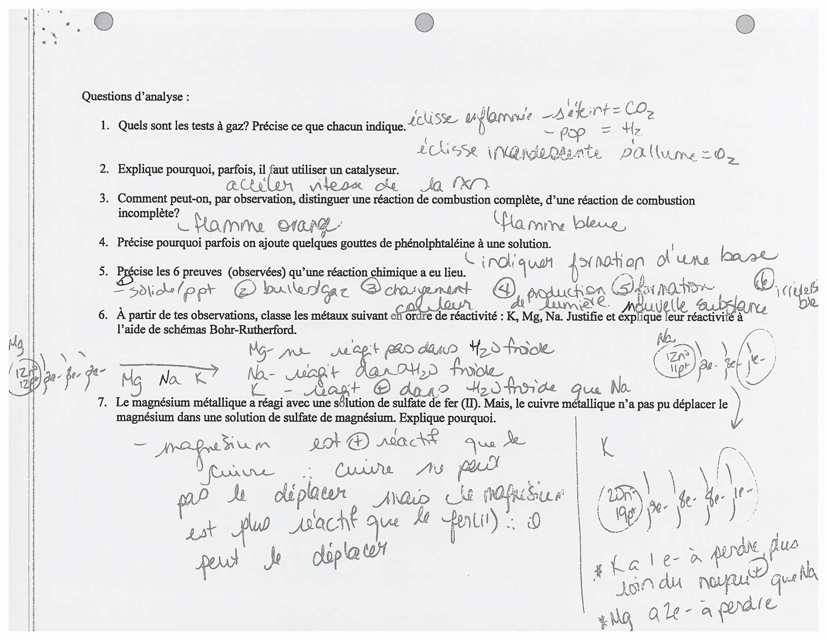 Questions d'analyse :
1. Quels sont les tests à gaz? Précise ce que chacun indique. éclisse enflammée - s'éteint = CO₂
- pop = H₂
éclisse incandescente s'allume = O₂
2. Explique pourquoi, parfois, il faut utiliser un catalyseur.
accéler vitesse de la rxn
3. Comment peut-on, par observation, distinguer une réaction de combustion complète, d'une réaction de combustion
incomplète?
flamme orange flamme bleue
4. Précise pourquoi parfois on ajoute quelques gouttes de phénolphtaléine à une solution.
indiquer formation d'une base
5. Précise les 6 preuves (observées) qu'une réaction chimique a eu lieu.
① - solide/ppt ② bulles/gaz ③ changement couleur ④ production de lumière ⑤ formation nouvelle substance ⑥ irréversible
6. À partir de tes observations, classe les métaux suivant en ordre de réactivité : K, Mg, Na. Justifie et explique leur réactivité à
l'aide de schémas Bohr-Rutherford.
Mg
12n° 12p+ )2e- )8e- )2e-
Mg Na K
Mg - ne réagit pas dans H₂O froide
Na - réagit dans H₂O froide
K - réagit ⊕ dans H₂O froide que Na
Na
12n° 11p+ )2e- )8e- )1e-
7. Le magnésium métallique a réagi avec une solution de sulfate de fer (II). Mais, le cuivre métallique n'a pas pu déplacer le
magnésium dans une solution de sulfate de magnésium. Explique pourquoi.
- magnésium est ⊕ réactif que le
cuivre ∴ cuivre ne peut
pas le déplacer mais le magnésium
est plus réactif que le fer(II) ∴ il
peut le déplacer
K
20n° 19p+ )2e- )8e- )8e- )1e-
* K a 1 e- à perdre, plus
loin du noyau ⊕ que Na
* Mg a 2e- à perdre